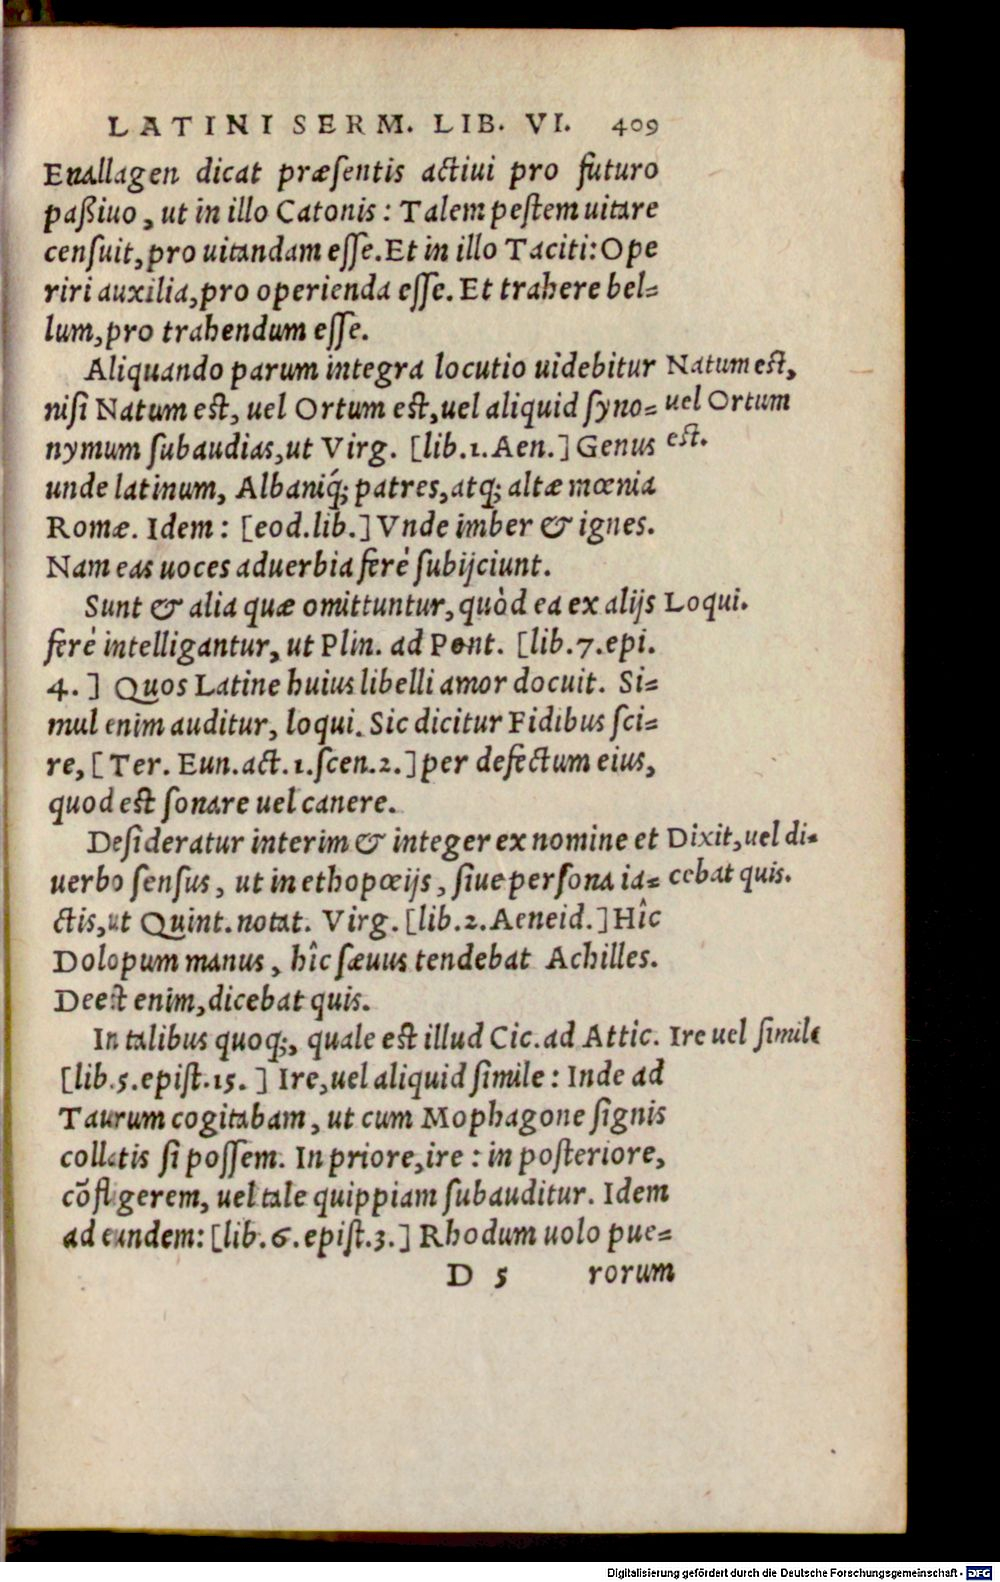 LATINI SERM. LIB. VI. 409
Enallagen dicat præsentis actiui pro futuro
paßiuo, ut in illo Catonis: Talem pestem uitare
censuit, pro uitandam esse. Et in illo Taciti: Ope
riri auxilia, pro operienda esse. Et trahere bel=
lum, pro trahendum esse.
Aliquando parum integra locutio uidebitur
nisi Natum est, uel Ortum est, uel aliquid syno=
nymum subaudias, ut Virg. [lib.1.Aen.] Genus
unde latinum, Albaniq́; patres, atq; altæ mœnia
Romæ. Idem: [eod.lib.] Vnde imber & ignes.
Nam eas uoces aduerbia ferè subijciunt.
Natum est,
uel Ortum
est.
Sunt & alia quæ omittuntur, quòd ea ex alijs
ferè intelligantur, ut Plin. ad Pont. [lib.7.epi.
4.] Quos Latine huius libelli amor docuit. Si=
mul enim auditur, loqui. Sic dicitur Fidibus sci=
re, [Ter. Eun.act.1.scen.2.] per defectum eius,
quod est sonare uel canere.
Loqui.
Desideratur interim & integer ex nomine et
uerbo sensus, ut in ethopœijs, siue persona ia=
ctis, ut Quint. notat. Virg. [lib.2.Aeneid.] Hîc
Dolopum manus, hîc sæuus tendebat Achilles.
Deest enim, dicebat quis.
Dixit, uel di=
cebat quis.
In talibus quoq;, quale est illud Cic. ad Attic.
[lib.5.epist.15.] Ire, uel aliquid simile: Inde ad
Taurum cogitabam, ut cum Mophagone signis
collatis si possem. In priore, ire: in posteriore,
cõfligerem, uel tale quippiam subauditur. Idem
ad eundem: [lib.6.epist.3.] Rhodum uolo pue=
Ire uel simile
D 5 rorum
Digitalisierung gefördert durch die Deutsche Forschungsgemeinschaft - DFG